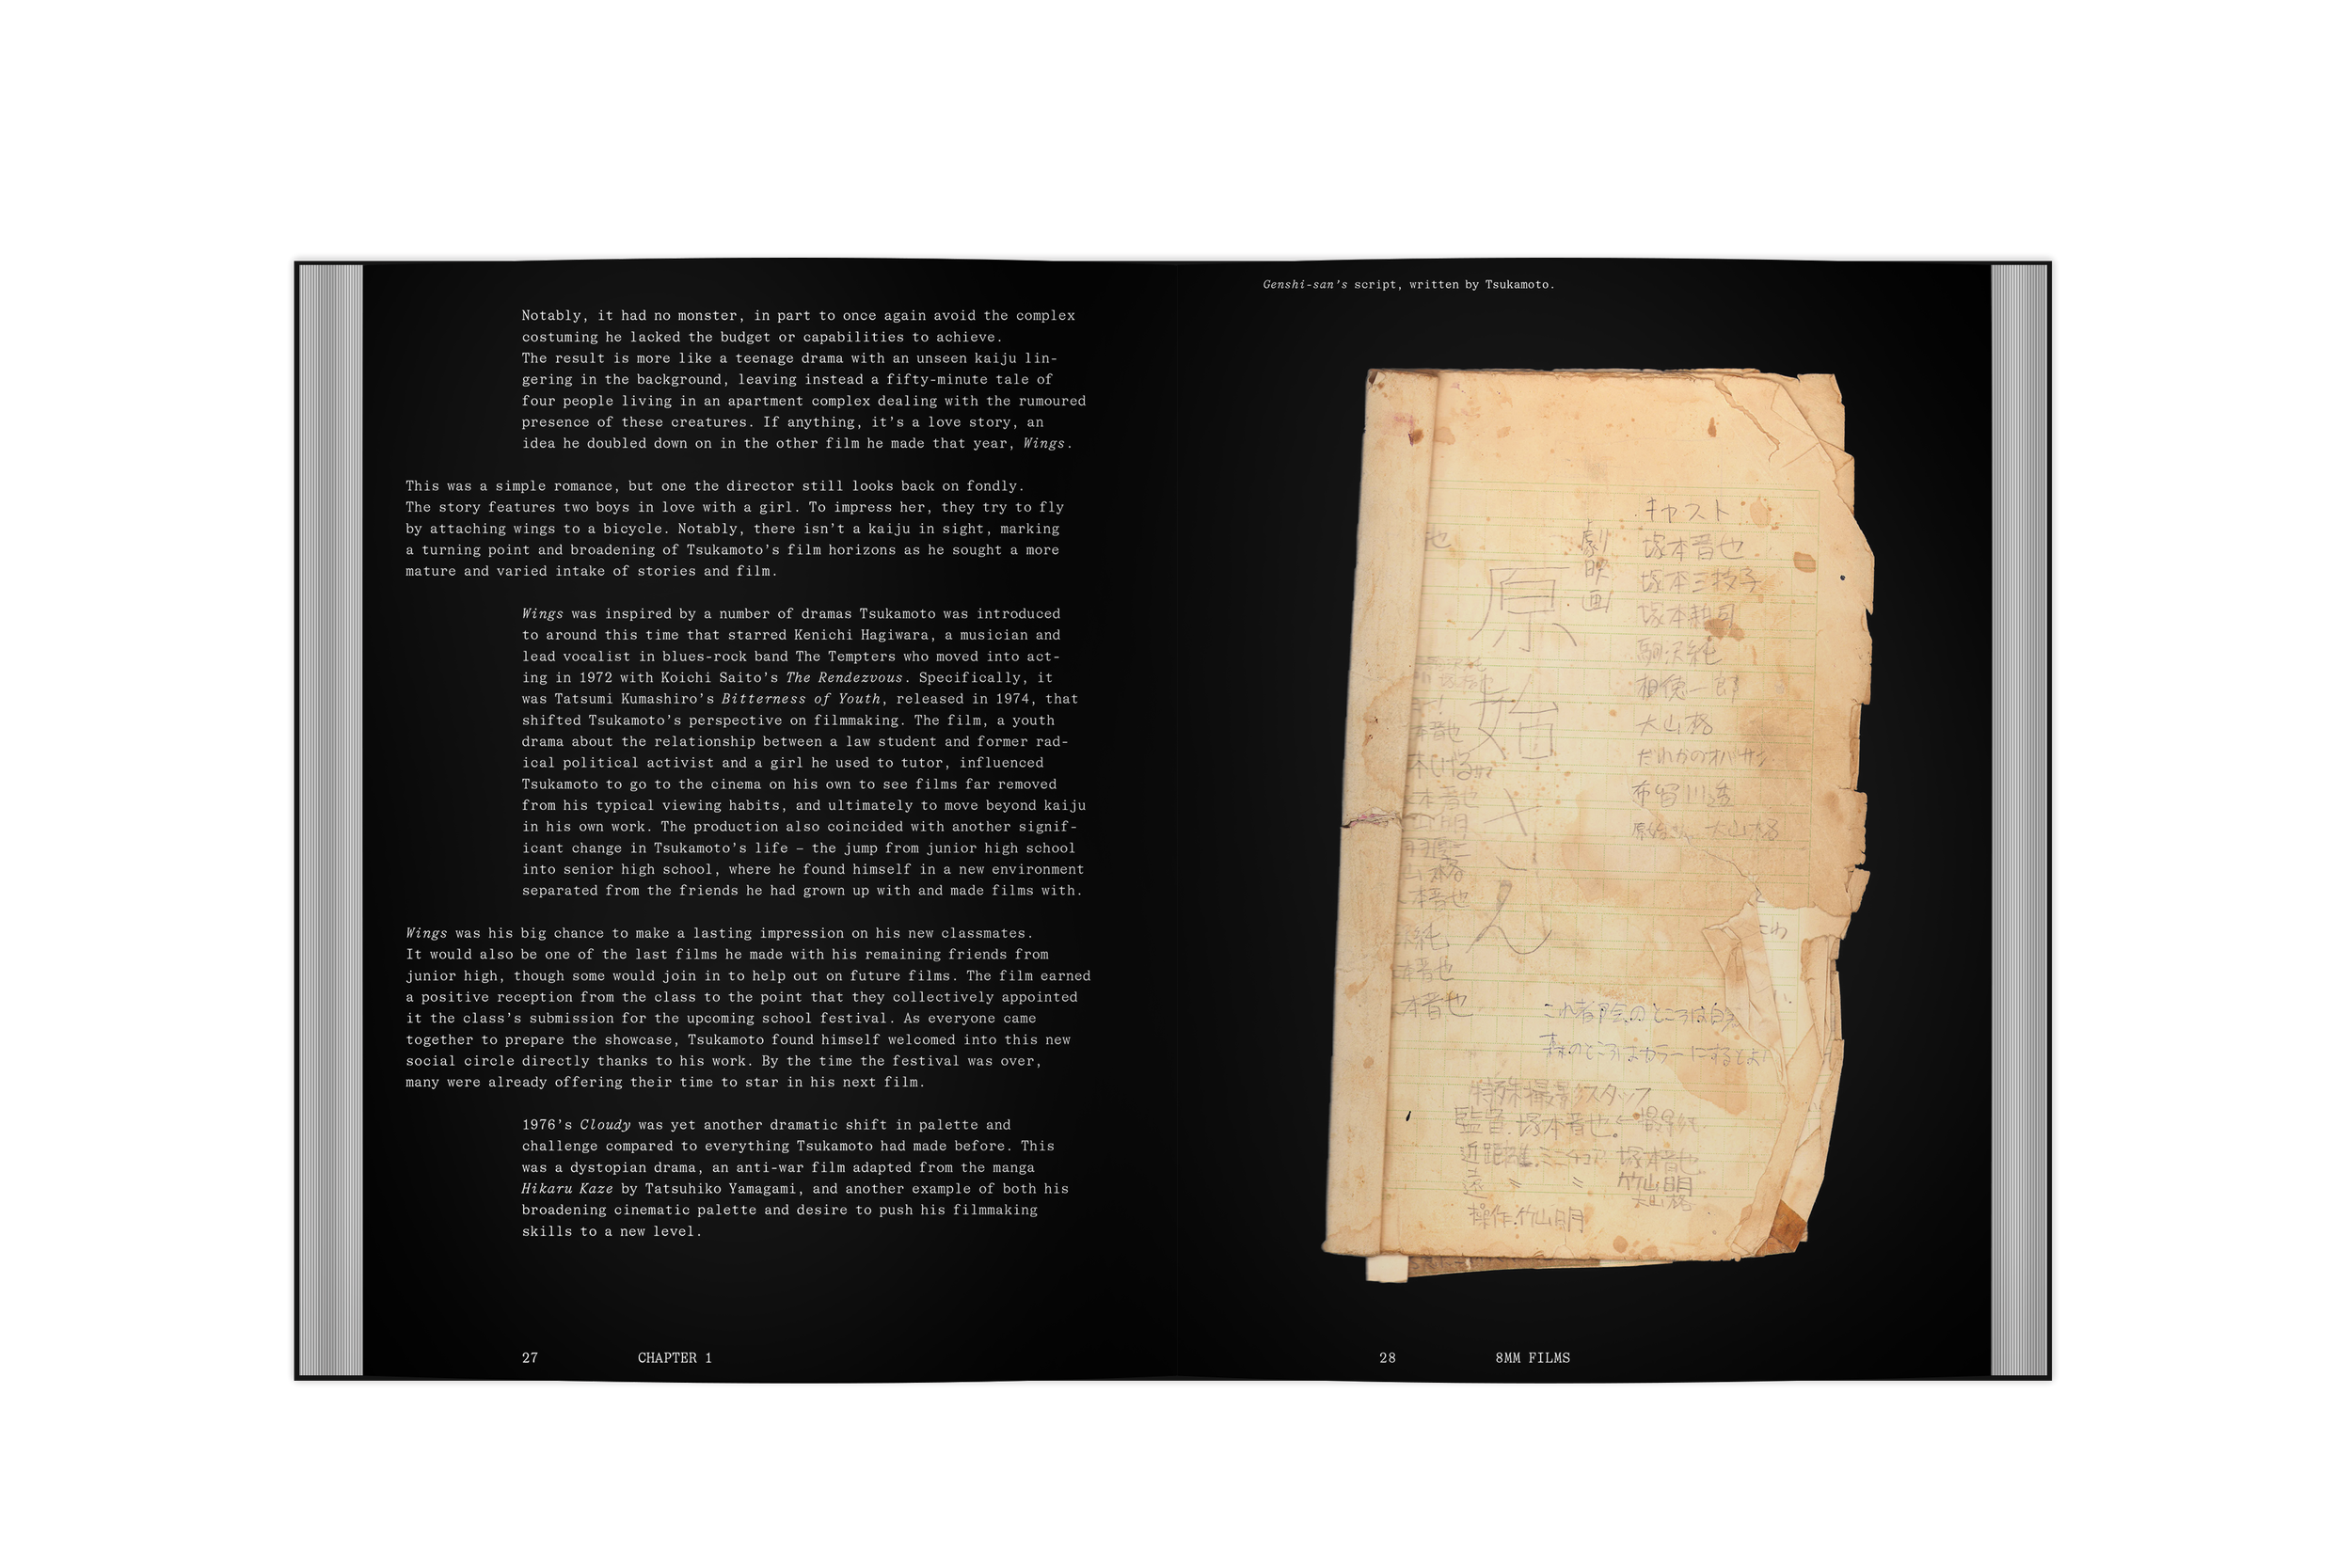 Notably, it had no monster, in part to once again avoid the complex
costuming he lacked the budget or capabilities to achieve.
The result is more like a teenage drama with an unseen kaiju lin-
gering in the background, leaving instead a fifty-minute tale of
four people living in an apartment complex dealing with the rumoured
presence of these creatures. If anything, it’s a love story, an
idea he doubled down on in the other film he made that year, Wings.
This was a simple romance, but one the director still looks back on fondly.
The story features two boys in love with a girl. To impress her, they try to fly
by attaching wings to a bicycle. Notably, there isn’t a kaiju in sight, marking
a turning point and broadening of Tsukamoto’s film horizons as he sought a more
mature and varied intake of stories and film.
Wings was inspired by a number of dramas Tsukamoto was introduced
to around this time that starred Kenichi Hagiwara, a musician and
lead vocalist in blues-rock band The Tempters who moved into act-
ing in 1972 with Koichi Saito’s The Rendezvous. Specifically, it
was Tatsumi Kumashiro’s Bitterness of Youth, released in 1974, that
shifted Tsukamoto’s perspective on filmmaking. The film, a youth
drama about the relationship between a law student and former rad-
ical political activist and a girl he used to tutor, influenced
Tsukamoto to go to the cinema on his own to see films far removed
from his typical viewing habits, and ultimately to move beyond kaiju
in his own work. The production also coincided with another signif-
icant change in Tsukamoto’s life – the jump from junior high school
into senior high school, where he found himself in a new environment
separated from the friends he had grown up with and made films with.
Wings was his big chance to make a lasting impression on his new classmates.
It would also be one of the last films he made with his remaining friends from
junior high, though some would join in to help out on future films. The film earned
a positive reception from the class to the point that they collectively appointed
it the class’s submission for the upcoming school festival. As everyone came
together to prepare the showcase, Tsukamoto found himself welcomed into this new
social circle directly thanks to his work. By the time the festival was over,
many were already offering their time to star in his next film.
1976’s Cloudy was yet another dramatic shift in palette and
challenge compared to everything Tsukamoto had made before. This
was a dystopian drama, an anti-war film adapted from the manga
Hikaru Kaze by Tatsuhiko Yamagami, and another example of both his
broadening cinematic palette and desire to push his filmmaking
skills to a new level.
27 CHAPTER 1
Genshi-san’s script, written by Tsukamoto.
劇映画
原始さん
キャスト
塚本晋也
塚本三枝子
塚本耕司
駒沢純
相徳一郎
大山格
だれかのオバサン
布留川
原始さん 大山格
これ都会のところは白
森のところはカラーにするとよ
特殊撮影スタッフ
監督 塚本晋也
近距離ミニチュア 塚本晋也
遠 〃 〃 竹山明
大山格
操作 竹山明
28 8MM FILMS